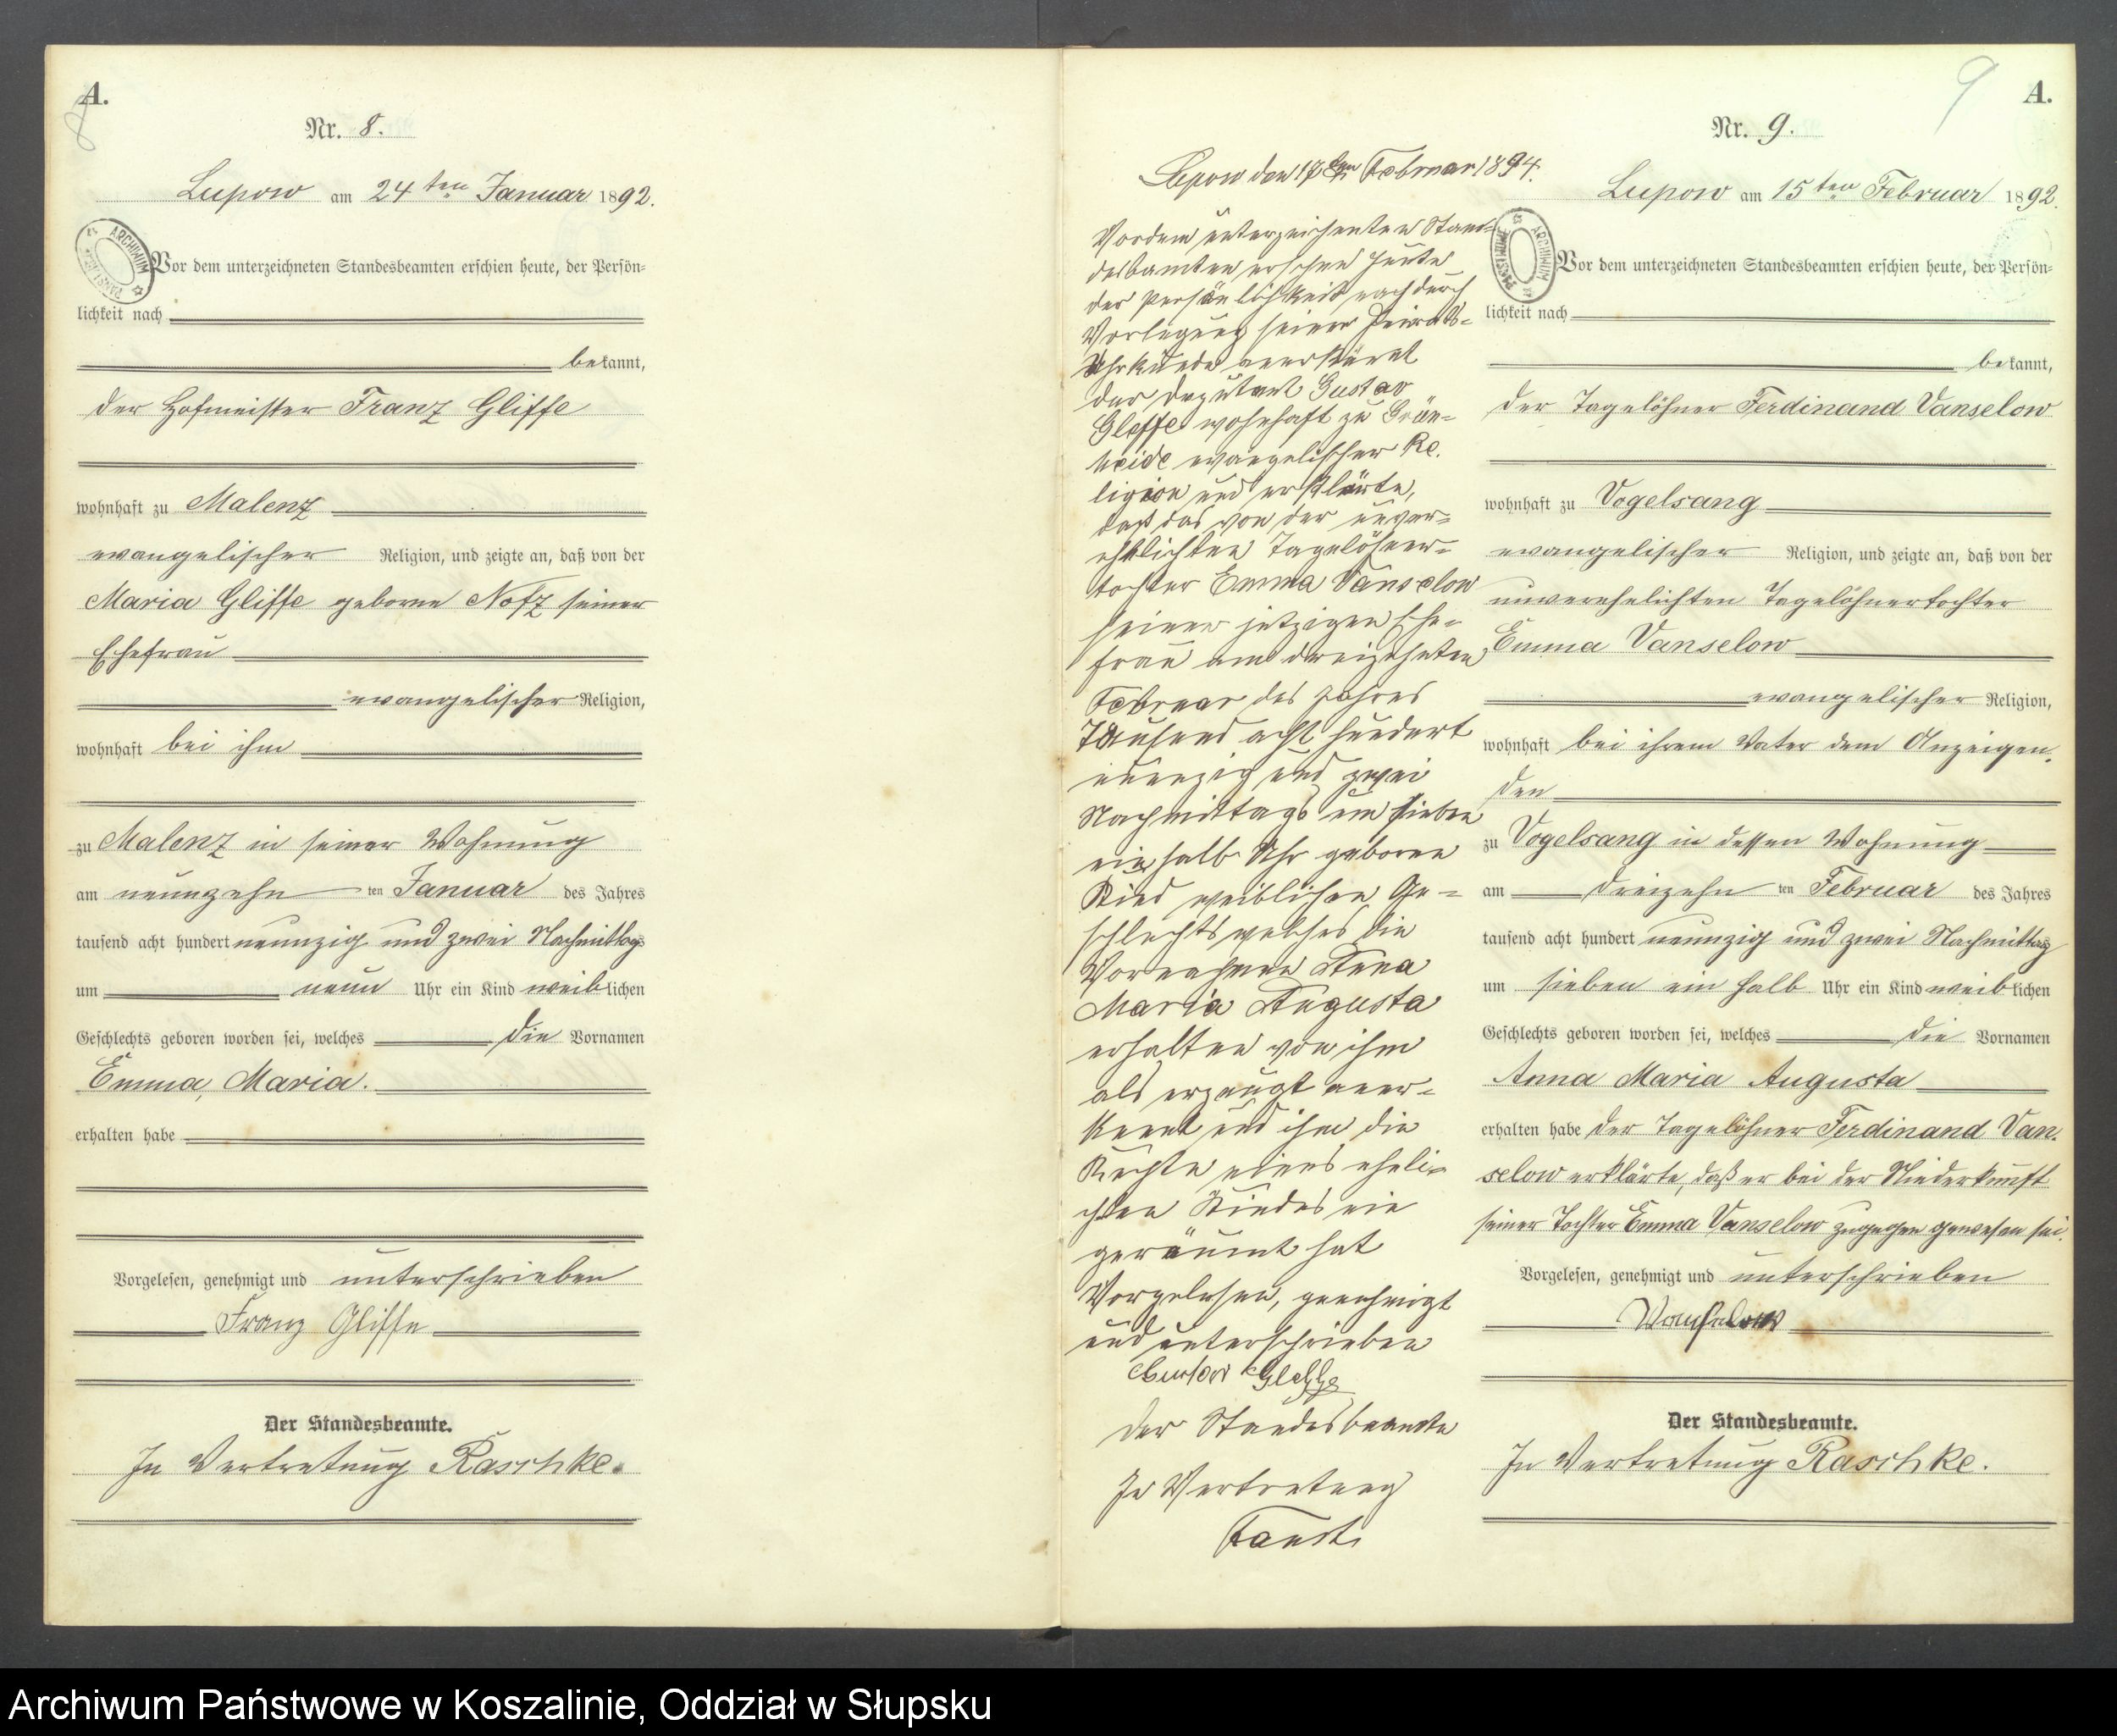 A.
8
Nr. 8.
Lupow am 24ten Januar 1892.
Vor dem unterzeichneten Standesbeamten erschien heute, der Persön=
lichkeit nach
bekannt,
der Hofmeister Franz Gliffe
wohnhaft zu Malenz
evangelischer Religion, und zeigte an, daß von der
Maria Gliffe geborne Notz seiner
Ehefrau
evangelischer Religion,
wohnhaft bei ihm
zu Malenz in seiner Wohnung
am neunzehn ten Januar des Jahres
tausend acht hundert neunzig und zwei Nachmittags
um neun Uhr ein Kind weiblichen
Geschlechts geboren worden sei, welches die Vornamen
Emma, Maria.
erhalten habe
Vorgelesen, genehmigt und unterschrieben
Franz Gliffe
Der Standesbeamte.
In Vertretung Raschke.
Lupow den 17ten Februar 1894.
Vor dem unterzeichneten Stan=
desbamten erschien heute
der Persönlichkeit nach durch
Vorlegung seiner Heirats=
Uhrkunde anerkannt
der Deputant Gustav
Gleffe wohnhaft zu Grün=
heide evangelischer Re.
ligion und erklärte,
daß das von der unver=
ehelichten Tagelöhner=
tochter Emma Vanselow
seiner jetzigen Ehe=
frau am dreizehnten
Februar des Jahres
Tausend acht hundert
neunzig und zwei
Nachmittags um sieben
ein halb Uhr geboren
Kind weiblichen Ge=
schlechts welches die
Vornahmen Anna
Maria Augusta
erhalten von ihm
als erzeugt aner=
kannt und ihm die
Rechte eines eheli=
chen Kindes ein
geräumt hat
Vorgelesen, genehmigt
und unterschrieben
Gustav Gleffe
Der Standesbeamte
In Vertretung
9
A.
Nr. 9.
Lupow am 15ten Februar 1892.
Vor dem unterzeichneten Standesbeamten erschien heute, der Persön=
lichkeit nach
bekannt,
der Tagelöhner Ferdinand Vanselow
wohnhaft zu Vogelsang
evangelischer Religion, und zeigte an, daß von der
unverehelichten Tagelöhnertochter
Emma Vanselow
evangelischer Religion,
wohnhaft bei ihrem Vater dem Anzeigen=
den
zu Vogelsang in dessen Wohnung
am dreizehn ten Februar des Jahres
tausend acht hundert neunzig und zwei Nachmittag
um sieben ein halb Uhr ein Kind weiblichen
Geschlechts geboren worden sei, welches die Vornamen
Anna Maria Augusta
erhalten habe der Tagelöhner Ferdinand Van=
selow erklärte, daß er bei der Niederkunft
seiner Tochter Emma Vanselow zugegen gewesen sei.
Vorgelesen, genehmigt und unterschrieben
Vanselow
Der Standesbeamte.
In Vertretung Raschke.
ARCHIWUM PAŃSTWOWE
ARCHIWUM PAŃSTWOWE
Archiwum Państwowe w Koszalinie, Oddział w Słupsku